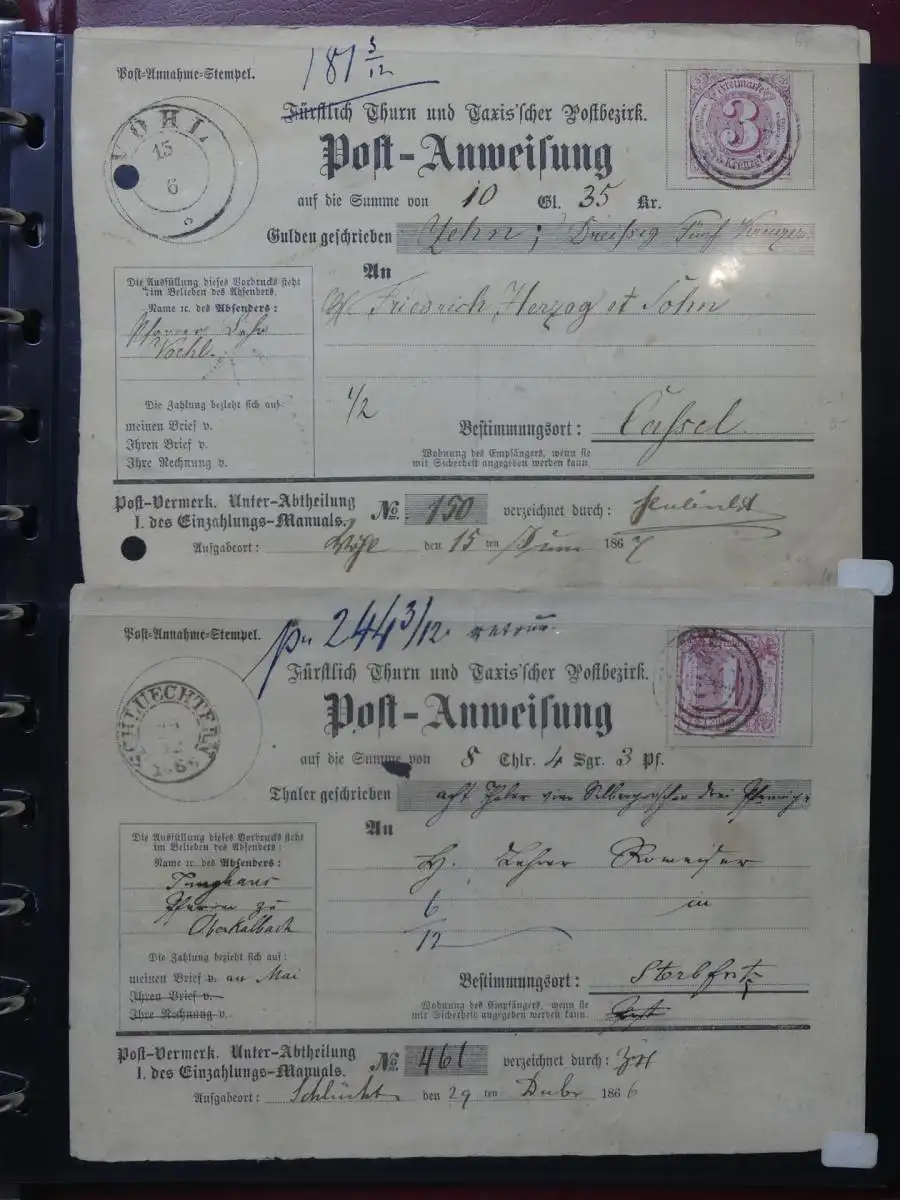 181 5/12
Post-Annahme-Stempel.
VÖHL
15
6
Fürstlich Thurn und Taxis'scher Postbezirk.
Freimarke
3
Kreuzer
Post-Anweisung
auf die Summe von 10 Gl. 35 Kr.
Gulden geschrieben Zehn; Dreissig Fünf Kreuzer
An
Friedrich Herzog et Sohn
Die Ausfüllung dieses Vordrucks steht
im Belieben des Absenders.
Name ꝛc. des Absenders:
Pfarrer
Voehl.
Die Zahlung bezieht sich auf:
meinen Brief v.
Ihren Brief v.
Ihre Rechnung v.
1/2
Bestimmungsort: Cassel
Wohnung des Empfängers, wenn sie
mit Sicherheit angegeben werden kann.
Post-Vermerk. Unter-Abtheilung
I. des Einzahlungs-Manuals. No. 150 verzeichnet durch:
Aufgabeort: Vöhl den 15 ten Juni 1867
244 3/12. retour.
Post-Annahme-Stempel.
SCHLUECHTERN
Fürstlich Thurn und Taxis'scher Postbezirk.
Post-Anweisung
auf die Summe von 8 Thlr. 4 Sgr. 3 Pf.
Thaler geschrieben acht Thaler vier Silbergroschen drei Pfennige
An
H. Lehrer Romeiser
in
Die Ausfüllung dieses Vordrucks steht
im Belieben des Absenders:
Name ꝛc. des Absenders:
Junghans
zu
Oberkalbach
6
12
Die Zahlung bezieht sich auf:
meinen Brief v. an Mai
Ihren Brief v.
Ihre Rechnung v.
Bestimmungsort: Sterbfritz
Wohnung des Empfängers, wenn sie
mit Sicherheit angegeben werden kann.
Post-Vermerk. Unter-Abtheilung
I. des Einzahlungs-Manuals. No. 461 verzeichnet durch:
Aufgabeort: den 29 ten 1866